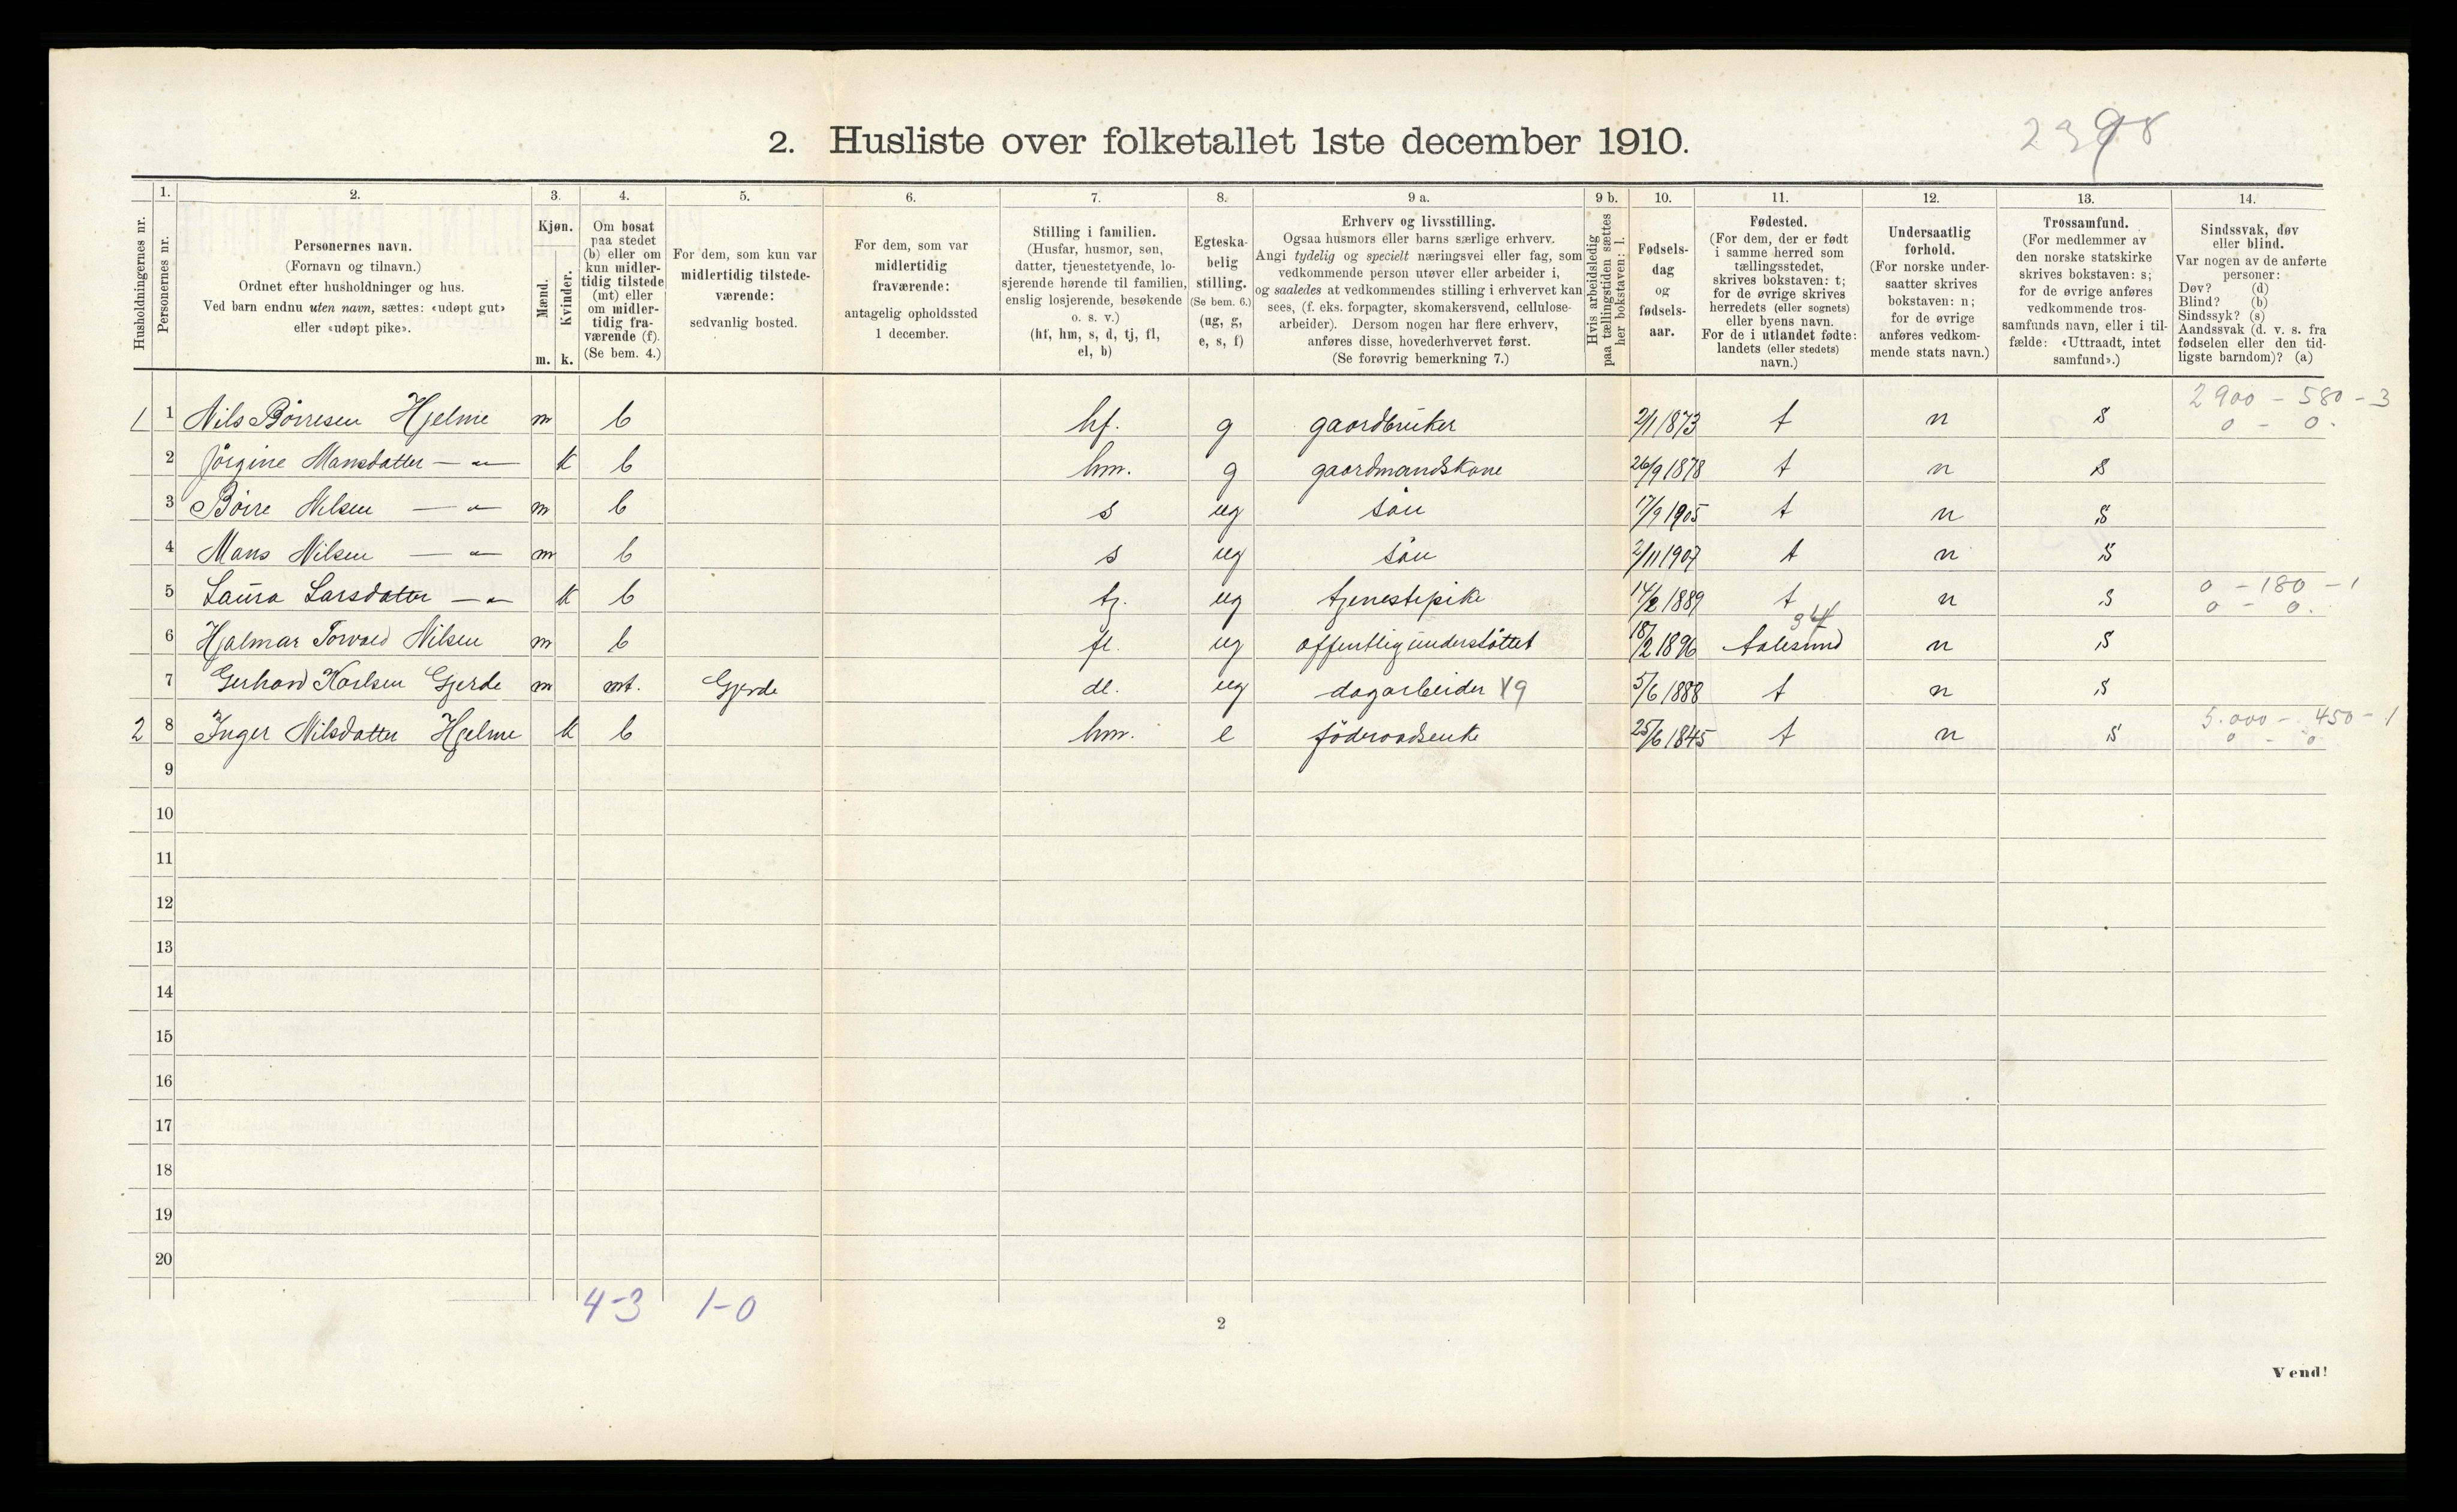 2. Husliste over folketallet 1ste december 1910.
2398
Husholdningernes nr.
1.
Personernes nr.
2.
Personernes navn.
(Fornavn og tilnavn.)
Ordnet efter husholdninger og hus.
Ved barn endnu uten navn, sættes: «udøpt gut»
eller «udøpt pike».
3.
Kjøn.
Mænd.
Kvinder.
m. k.
4.
Om bosat
paa stedet
(b) eller om
kun midler-
tidig tilstede
(mt) eller
om midler-
tidig fra-
værende (f).
(Se bem. 4.)
5.
For dem, som kun var
midlertidig tilstede-
værende:
sedvanlig bosted.
6.
For dem, som var
midlertidig
fraværende:
antagelig opholdssted
1 december.
7.
Stilling i familien.
(Husfar, husmor, søn,
datter, tjenestetyende, lo-
sjerende hørende til familien,
enslig losjerende, besøkende
o. s. v.)
(hf, hm, s, d, tj, fl,
el, b)
8.
Egteska-
belig
stilling.
(Se bem. 6.)
(ug, g,
e, s, f)
9 a.
Erhverv og livsstilling.
Ogsaa husmors eller barns særlige erhverv.
Angi tydelig og specielt næringsvei eller fag, som
vedkommende person utøver eller arbeider i,
og saaledes at vedkommendes stilling i erhvervet kan
sees, (f. eks. forpagter, skomakersvend, cellulose-
arbeider). Dersom nogen har flere erhverv,
anføres disse, hovederhvervet først.
(Se forøvrig bemerkning 7.)
9 b.
Hvis arbeidsledig
paa tællingstiden sættes
her bokstaven: l.
10.
Fødsels-
dag
og
fødsels-
aar.
11.
Fødested.
(For dem, der er født
i samme herred som
tællingsstedet,
skrives bokstaven: t;
for de øvrige skrives
herredets (eller sognets)
eller byens navn.
For de i utlandet fødte:
landets (eller stedets)
navn.)
12.
Undersaatlig
forhold.
(For norske under-
saatter skrives
bokstaven: n;
for de øvrige
anføres vedkom-
mende stats navn.)
13.
Trossamfund.
(For medlemmer av
den norske statskirke
skrives bokstaven: s;
for de øvrige anføres
vedkommende tros-
samfunds navn, eller i til-
fælde: «Uttraadt, intet
samfund».)
14.
Sindssvak, døv
eller blind.
Var nogen av de anførte
personer:
Døv? (d)
Blind? (b)
Sindssyk? (s)
Aandssvak (d. v. s. fra
fødselen eller den tid-
ligste barndom)? (a)
2900 - 580 - 3
1 1 Nils Börresen Hjelme m b hf. g gaardbruker 2/1 1873 t n s 0 - 0.
2 Jörgine Mansdatter — " — k b hm. g gaardmandskone 26/9 1878 t n s
3 Börre Nilsen — " — m b s ug sön 17/9 1905 t n s
4 Mans Nilsen — " — m b s ug sön 2/11 1907 t n s
0 - 180 - 1
5 Laura Larsdatter — " — k b tj. ug tjenestepike 14/2 1889 t n s 0 - 0.
6 Hjalmar Torvald Nilsen m b fl. ug offentlig understöttet 18/2 1896 Aalesund n s
7 Gerhard Karlsen Gjerde m mt. Gjerde dl. ug dagarbeider 5/6 1888 t n s
5.000 - 450 - 1
2 8 Inger Nilsdatter Hjelme k b hm. e föderaadsenke 25/6 1845 t n s 0 - 0
9
10
11
12
13
14
15
16
17
18
19
20
4-3 1-0
2
Vend!